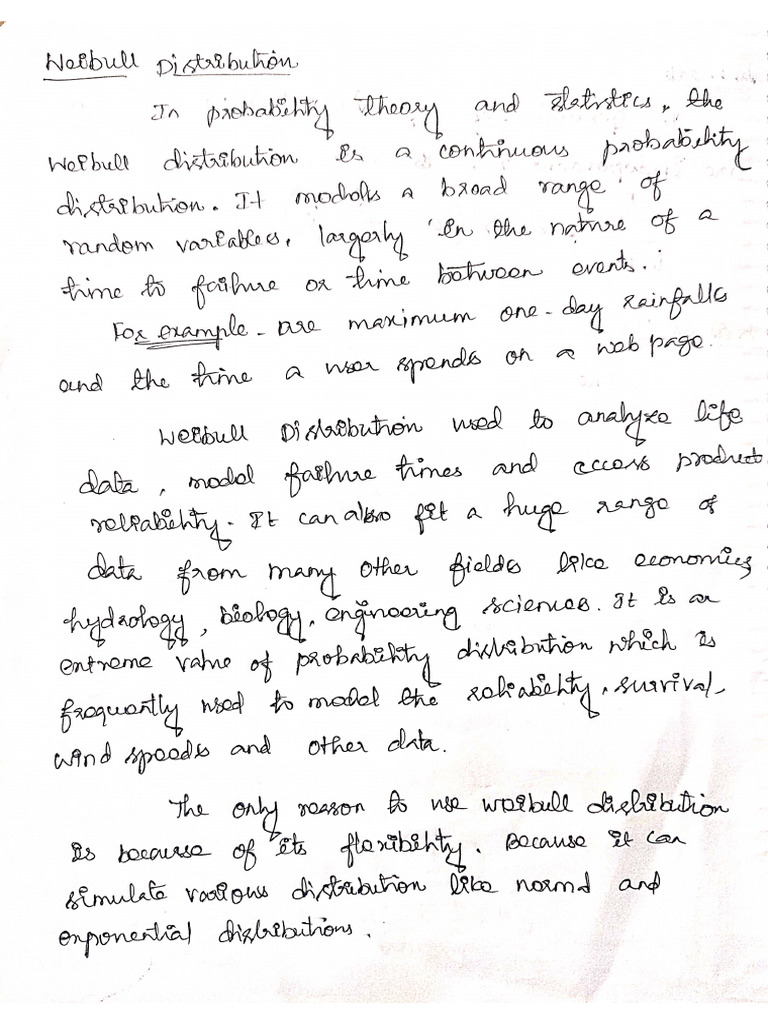 Weibull Distribution
In probability theory and statistics, the
Weibull distribution is a continuous probability
distribution. It models a broad range of
random variables, largerly in the nature of a
time to failure or time between events.
For example - are maximum one-day rainfalls
and the time a user spends on a web page.
Weibull Distribution used to analyze life
data, model failure times and access product
reliability. It can also fit a huge range of
data from many other fields like economics
hydrology, biology, engineering sciences. It is an
extreme value of probability distribution which is
frequently used to model the reliability, survival,
wind speeds and other data.
The only reason to use weibull distribution
is because of its flexibility. Because it can
simulate various distribution like normal and
exponential distributions.